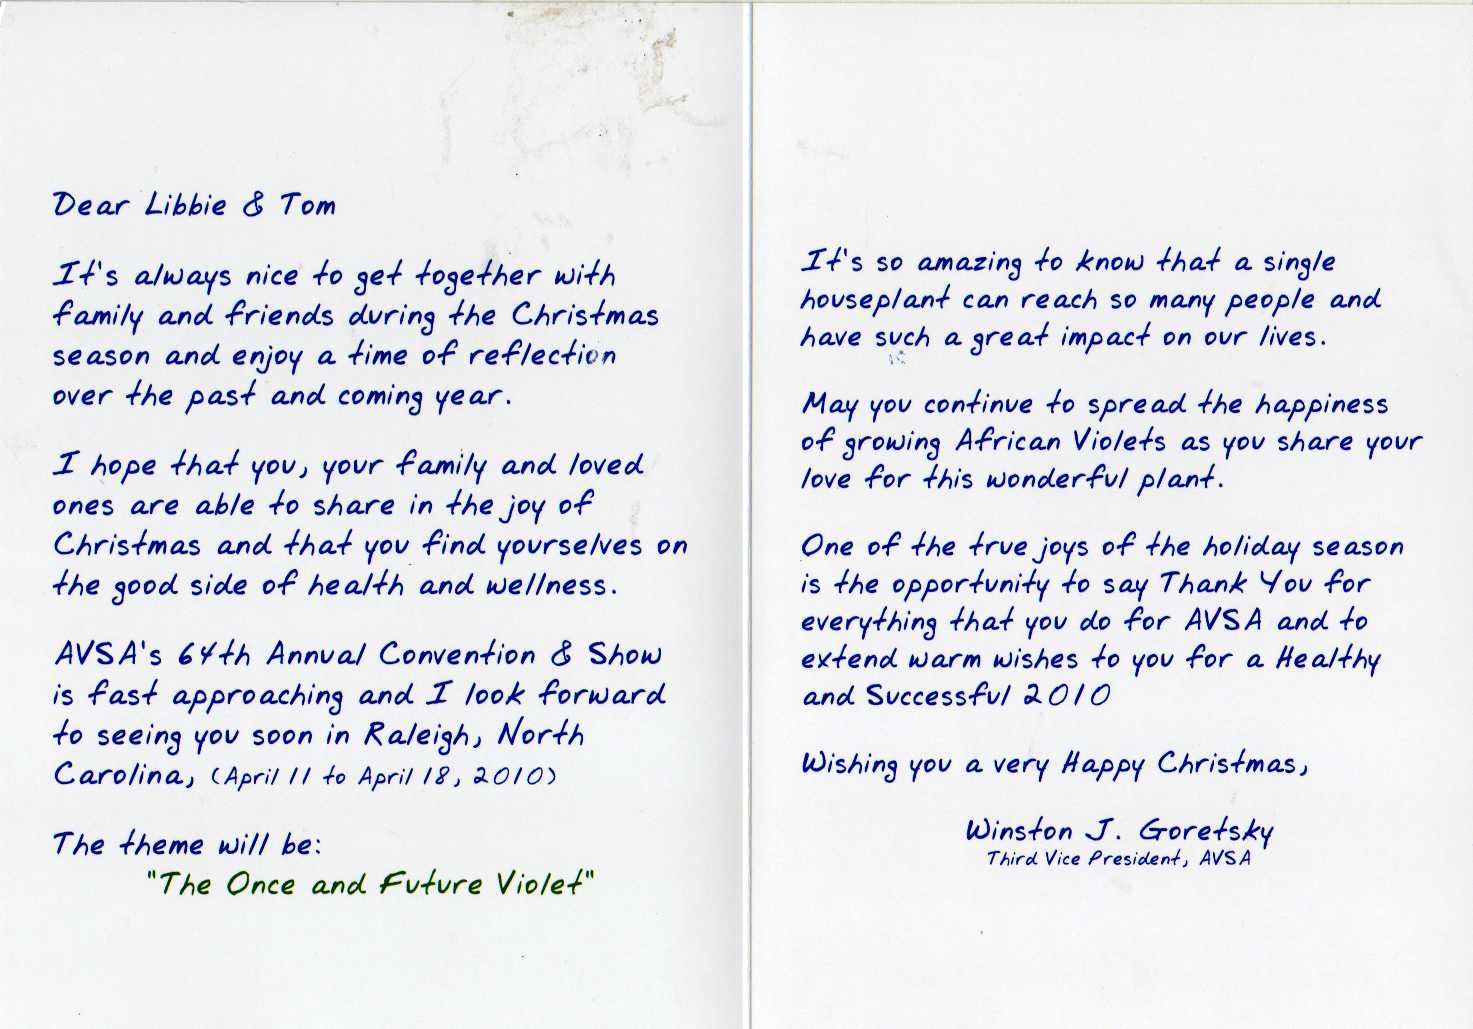 Dear Libbie & Tom
It's always nice to get together with
family and friends during the Christmas
season and enjoy a time of reflection
over the past and coming year.
I hope that you, your family and loved
ones are able to share in the joy of
Christmas and that you find yourselves on
the good side of health and wellness.
AVSA's 64th Annual Convention & Show
is fast approaching and I look forward
to seeing you soon in Raleigh, North
Carolina, (April 11 to April 18, 2010)
The theme will be:
"The Once and Future Violet"
It's so amazing to know that a single
houseplant can reach so many people and
have such a great impact on our lives.
May you continue to spread the happiness
of growing African Violets as you share your
love for this wonderful plant.
One of the true joys of the holiday season
is the opportunity to say Thank You for
everything that you do for AVSA and to
extend warm wishes to you for a Healthy
and Successful 2010
Wishing you a very Happy Christmas,
Winston J. Goretsky
Third Vice President, AVSA